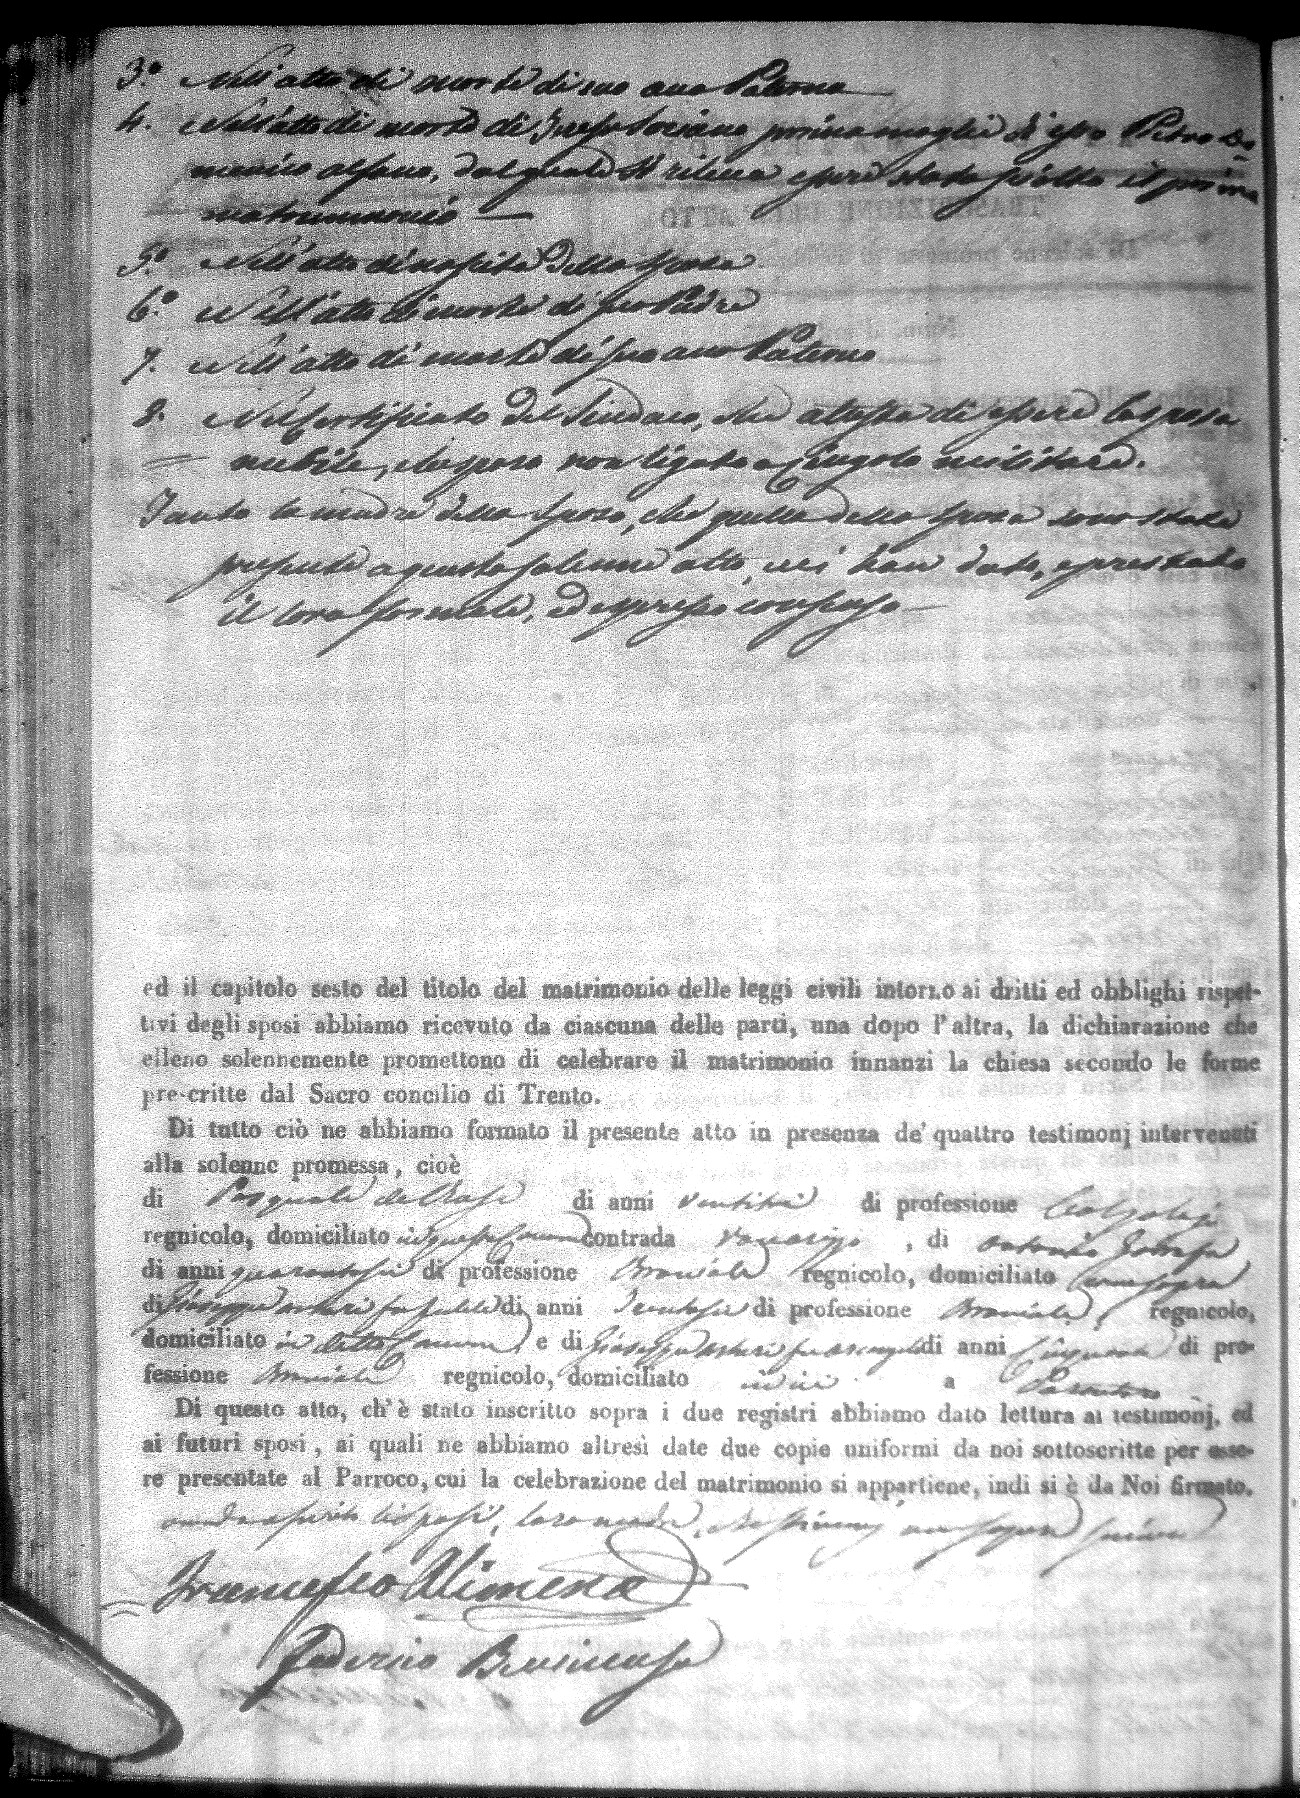 3.° Nell'atto di morte di suo avo Paterno
4. Nell'atto di morte di prima moglie di esso Pietro Do=
menico Alfano, dal quale si rileva essere stato sciolto il primo
matrimonio
5.° Nell'atto di nascita della sposa
6.° Nell'atto di morte di suo Padre
7. Nell'atto di morte di suo avo Paterno
8. Nel certificato del Sindaco, che attesta di essere la sposa
nubile, e lo sposo non ligato a Cingolo militare.
Tanto la madre dello sposo, che quella della sposa sono state
presenti a questo solenne atto, ed han dato, e prestato
il loro formale, ed espresso consenso
ed il capitolo sesto del titolo del matrimonio delle leggi civili intorno ai dritti ed obblighi rispet-
tivi degli sposi abbiamo ricevuto da ciascuna delle parti, una dopo l'altra, la dichiarazione che
elleno solennemente promettono di celebrare il matrimonio innanzi la chiesa secondo le forme
prescritte dal Sacro concilio di Trento.
Di tutto ciò ne abbiamo formato il presente atto in presenza de' quattro testimonj intervenuti
alla solenne promessa, cioè
di Pasquale di anni di professione
regnicolo, domiciliato in questo Comune contrada , di Antonio
di anni di professione Bracciale regnicolo, domiciliato come sopra
di Giuseppe di anni di professione Bracciale, regnicolo,
domiciliato in detto Comune, e di Giuseppe di anni Cinquanta di pro-
fessione Bracciale regnicolo, domiciliato ivi a
Di questo atto, ch'è stato inscritto sopra i due registri abbiamo dato lettura ai testimonj, ed
ai futuri sposi, ai quali ne abbiamo altresì date due copie uniformi da noi sottoscritte per esse-
re presentate al Parroco, cui la celebrazione del matrimonio si appartiene, indi si è da Noi firmato.
avendo asserito li sposi, loro madri, e testimonj non sapere scrivere
Francesco Alimena